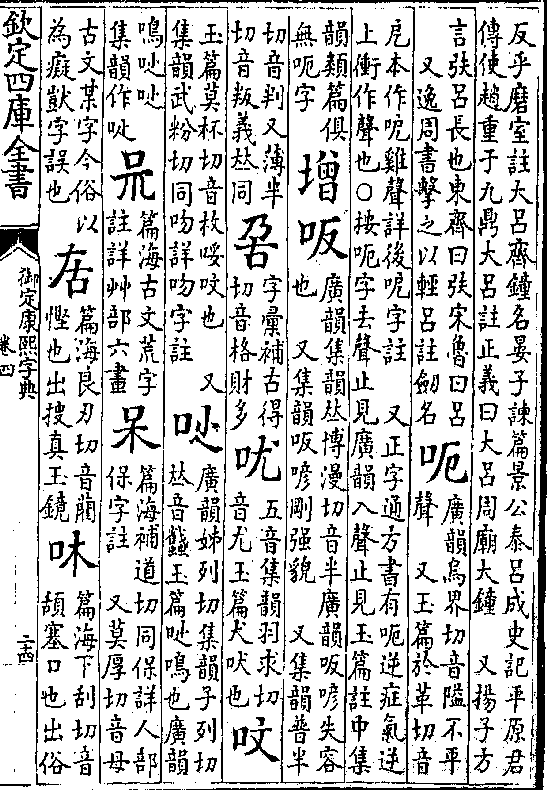 反乎磨室註大呂齊鐘名晏子諫篇景公泰呂成史記平原君
傳使趙重于九鼎大呂註正義曰大呂周廟大鐘　又揚子方
言挔呂長也東齊曰挔宋魯曰呂
又逸周書擊之以輕呂註劒名
呃
廣韻烏界切音隘不平
聲　又玉篇於革切音
戹本作呝雞聲詳後呝字註　又正字通方書有呃逆症氣逆
上衝作聲也○按呃字去聲止見廣韻入聲止見玉篇註中集
韻類篇俱
無呃字
增
𠯘
廣韻集韻𠀤博漫切音半廣韻𠯘諺失容
也　又集韻𠯘喭剛强貌　又集韻普半
切音判又薄半
切音叛義𠀤同
字彙補古得
切音格財多
五音集韻羽求切
音尤玉篇犬吠也
呅
玉篇莫杯切音枚呅也　又
集韻武粉切同吻詳吻字註
廣韻姊列切集韻子列切
𠀤音蠽玉篇鳴也廣韻
鳴
集韻作
篇海古文荒字
註詳艸部六畫
呆
篇海補道切同保詳人部
保字註　又莫厚切音母
古文某字今俗以
為癡獃字誤也
篇海良刃切音藺
慳也出搜真玉鏡
篇海下刮切音
頡塞口也出俗
欽定四庫全書
御定康熙字典
卷四
二十四